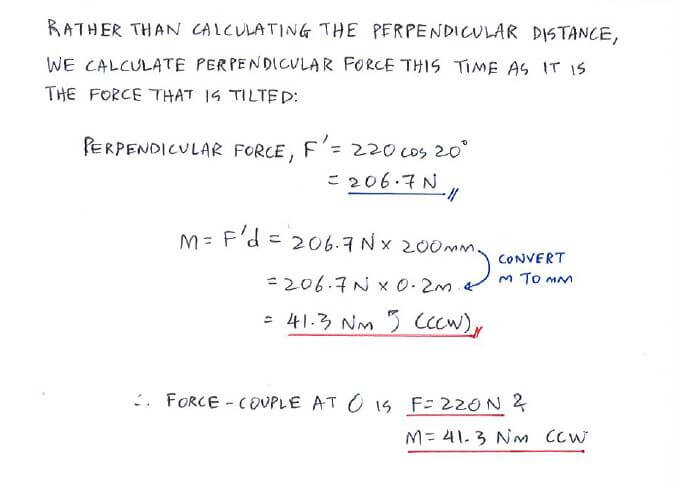 RATHER THAN CALCULATING THE PERPENDICULAR DISTANCE,
WE CALCULATE PERPENDICULAR FORCE THIS TIME AS IT IS
THE FORCE THAT IS TILTED:
PERPENDICULAR FORCE, F' = 220 cos 20°
= 206.7 N
M = F'd = 206.7 N x 200mm
CONVERT
M TO MM
= 206.7 N x 0.2m
= 41.3 Nm (CCW)
∴ FORCE-COUPLE AT O IS F = 220 N &
M = 41.3 Nm CCW